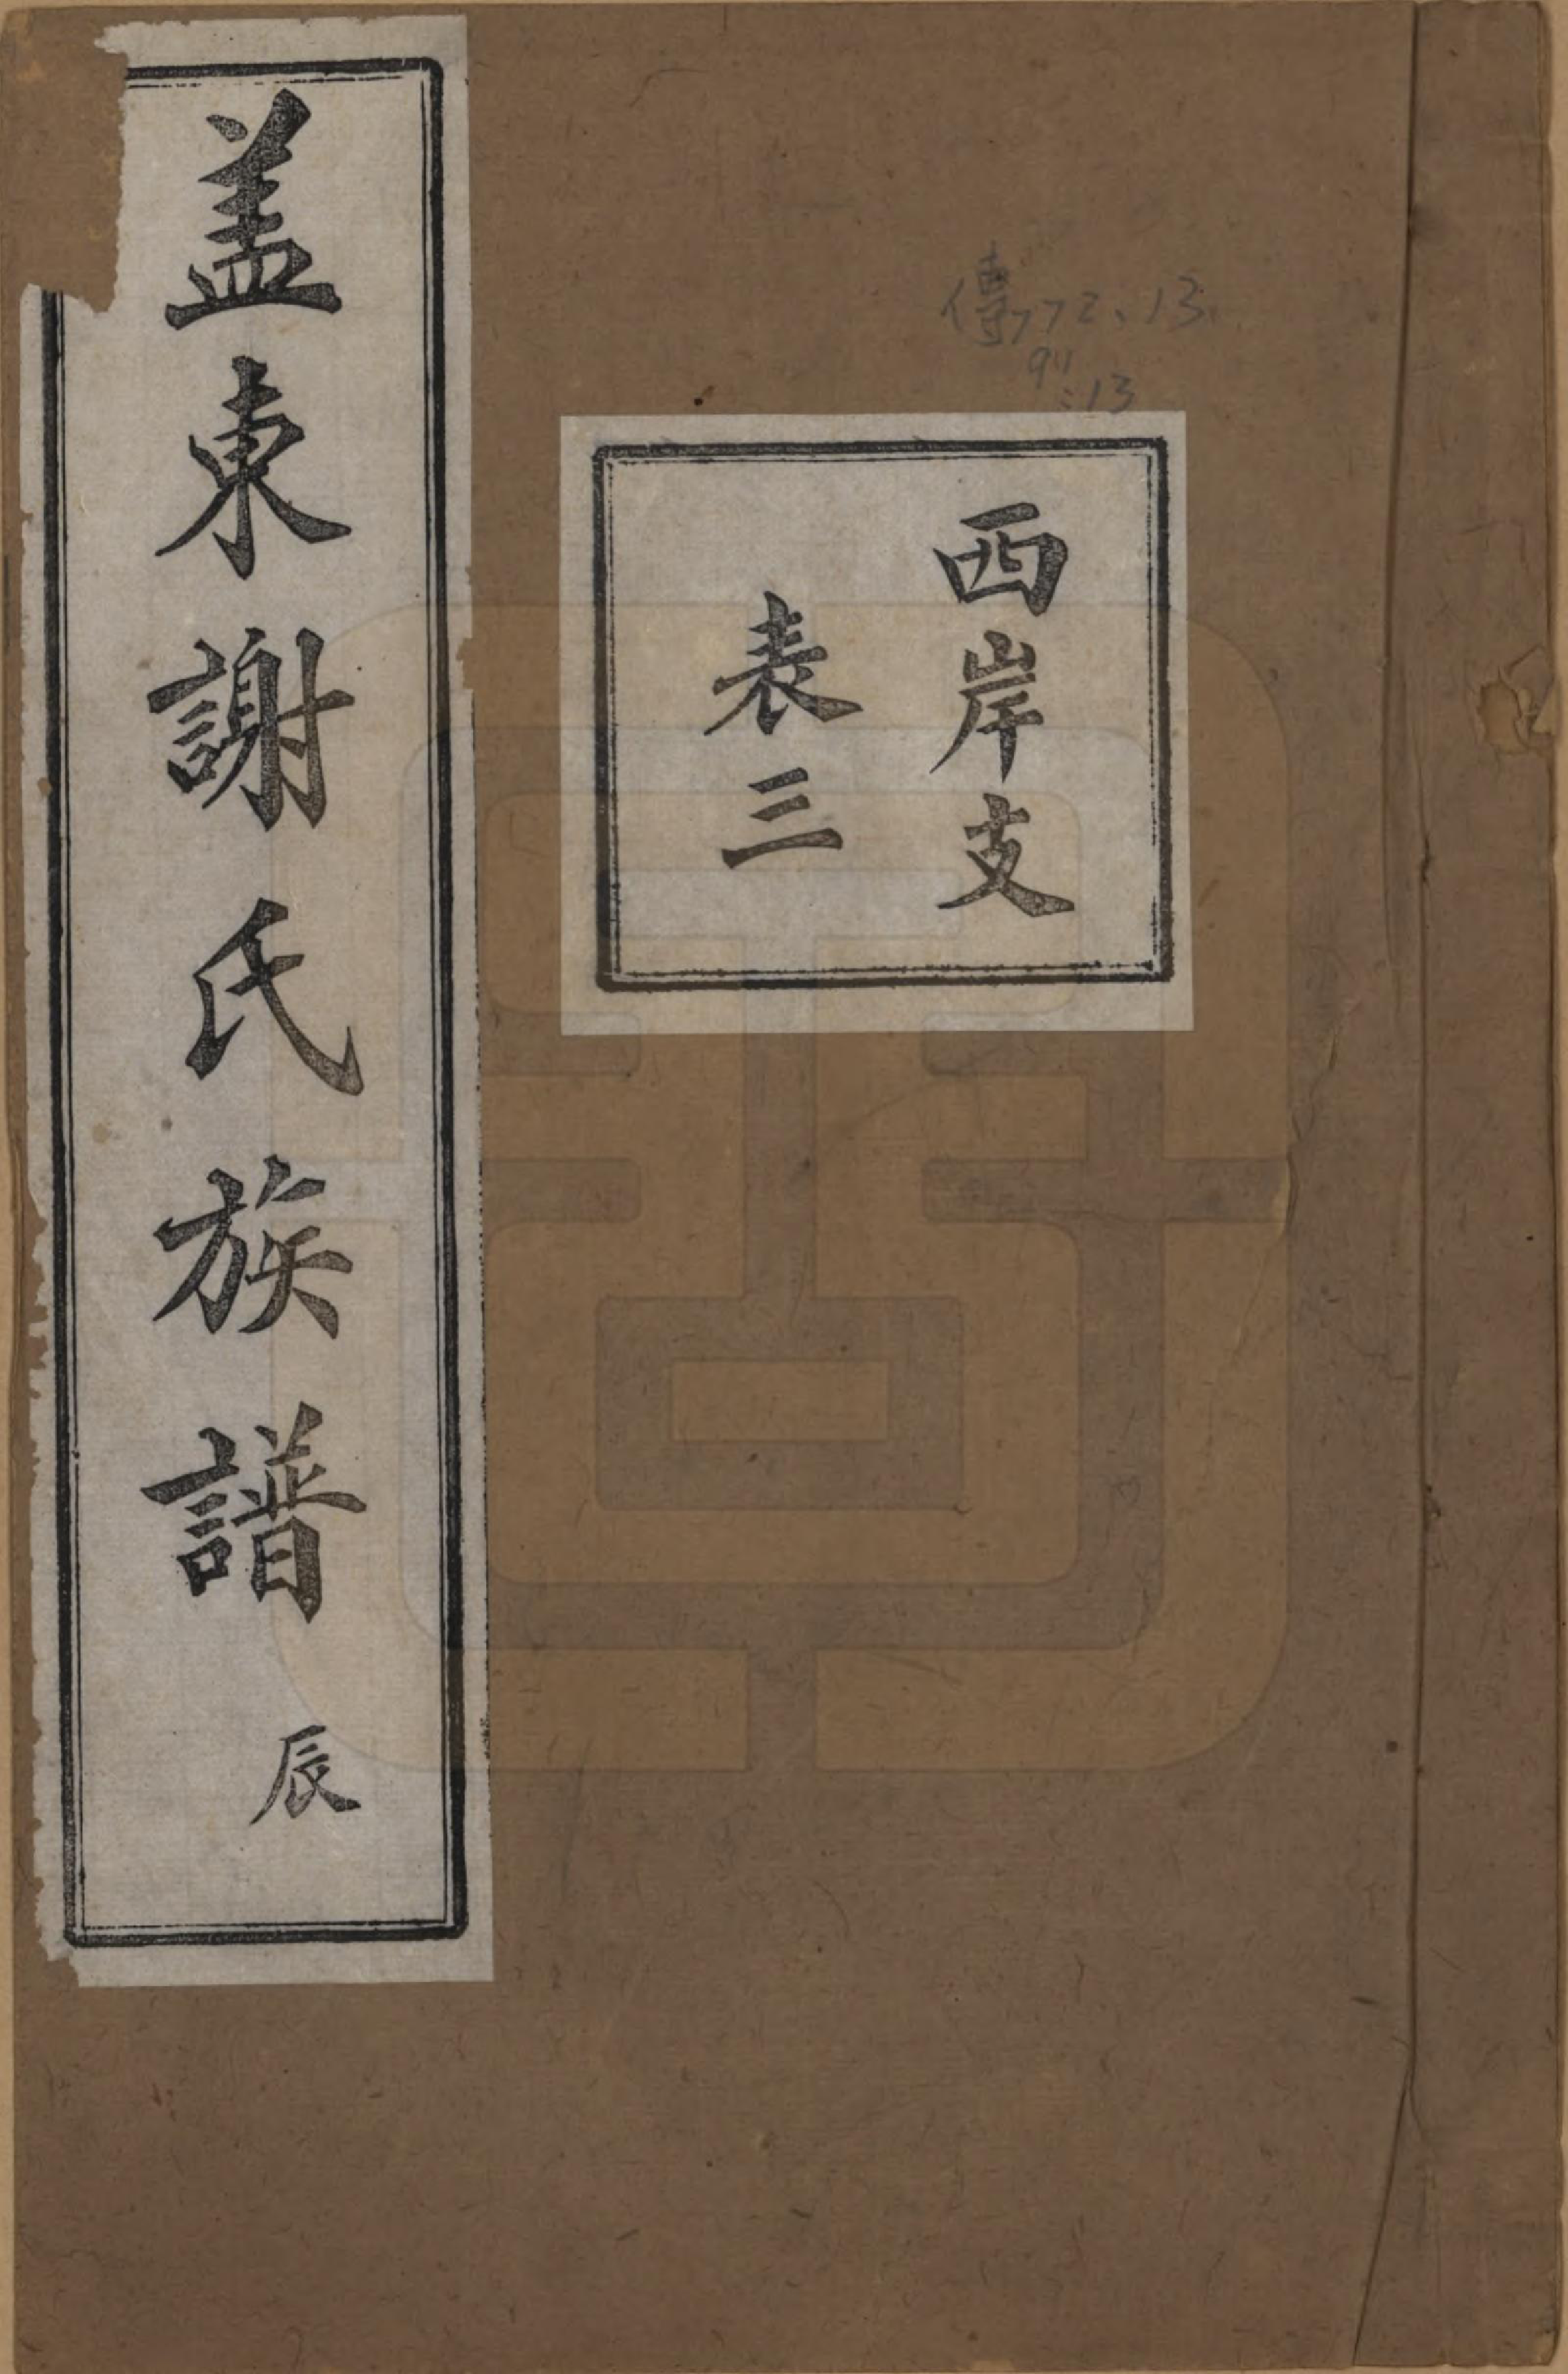 盖東謝氏族譜 辰
西岸支
表三
傳772.13
911
:13